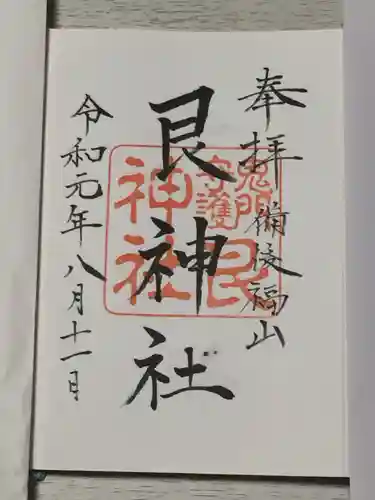 奉拝 備後福山
艮神社
令和元年八月十一日
鬼門
守護
艮
神社